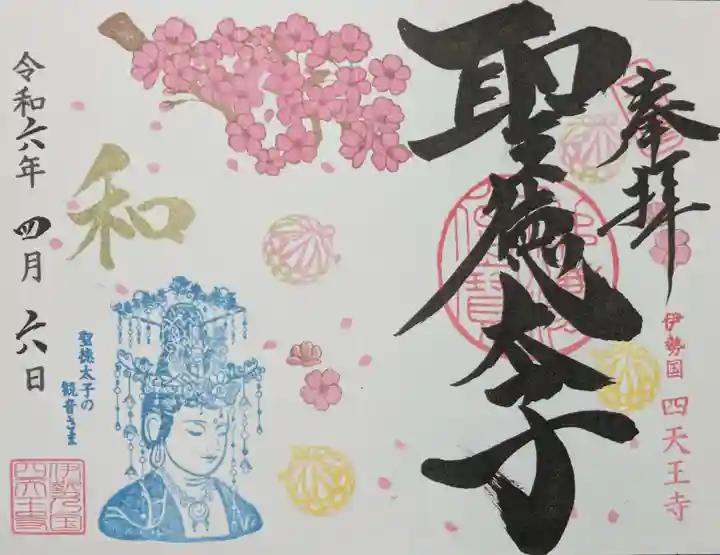 奉拝
聖徳太子
伊勢国 四天王寺
和
聖徳太子の
観音さま
令和六年 四月 六日